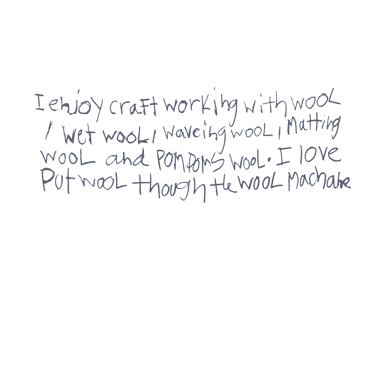 I enjoy craft working with wool
, wet wool, waveing wool, Matting
wool and pompoms wool. I love
Put wool though the wool Machane